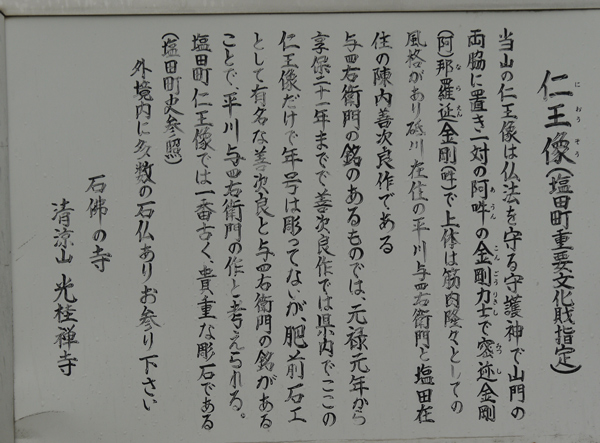 仁王像(塩田町重要文化財指定)
当山の仁王像は仏法を守る守護神で山門の
両脇に置き一対の阿吽の金剛力士で密迹金剛
(阿)那羅延金剛(吽)で上体は筋肉隆々としての
風格があり砥川在住の平川与四右衛門と塩田在
住の陳内善次良作である
与四右衛門の銘のあるものでは、元禄元年から
享保二十一年までで善次良作では県内でここの
仁王像だけで年号は彫ってないが、肥前石工
として有名な善次良と与四右衛門の銘がある
ことで平川与四右衛門の作と考えられる。
塩田町仁王像では一番古く、貴重な彫石である
(塩田町史参照)
外境内に多数の石仏ありお参り下さい
石佛の寺
清涼山光桂禅寺